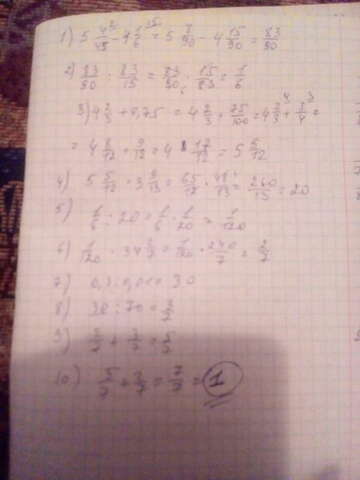 1) 5 4/45 - 4 1/6 = 5 8/90 - 4 15/90 = 83/90
2) 83/90 : 83/15 = 83/90 · 15/83 = 1/6
3) 4 2/3 + 0,75 = 4 2/3 + 75/100 = 4 2/3 + 3/4 =
= 4 8/12 + 9/12 = 4 17/12 = 5 5/12
4) 5 5/12 · 3 9/13 = 65/12 · 48/13 = 260/13 = 20
5) 1/6 : 20 = 1/6 · 1/20 = 1/120
6) 1/120 · 34 2/7 = 1/120 · 240/7 = 2/7
7) 30
8) : 70 =
9)
10) 5/7 + 2/7 = 7/7 = 1